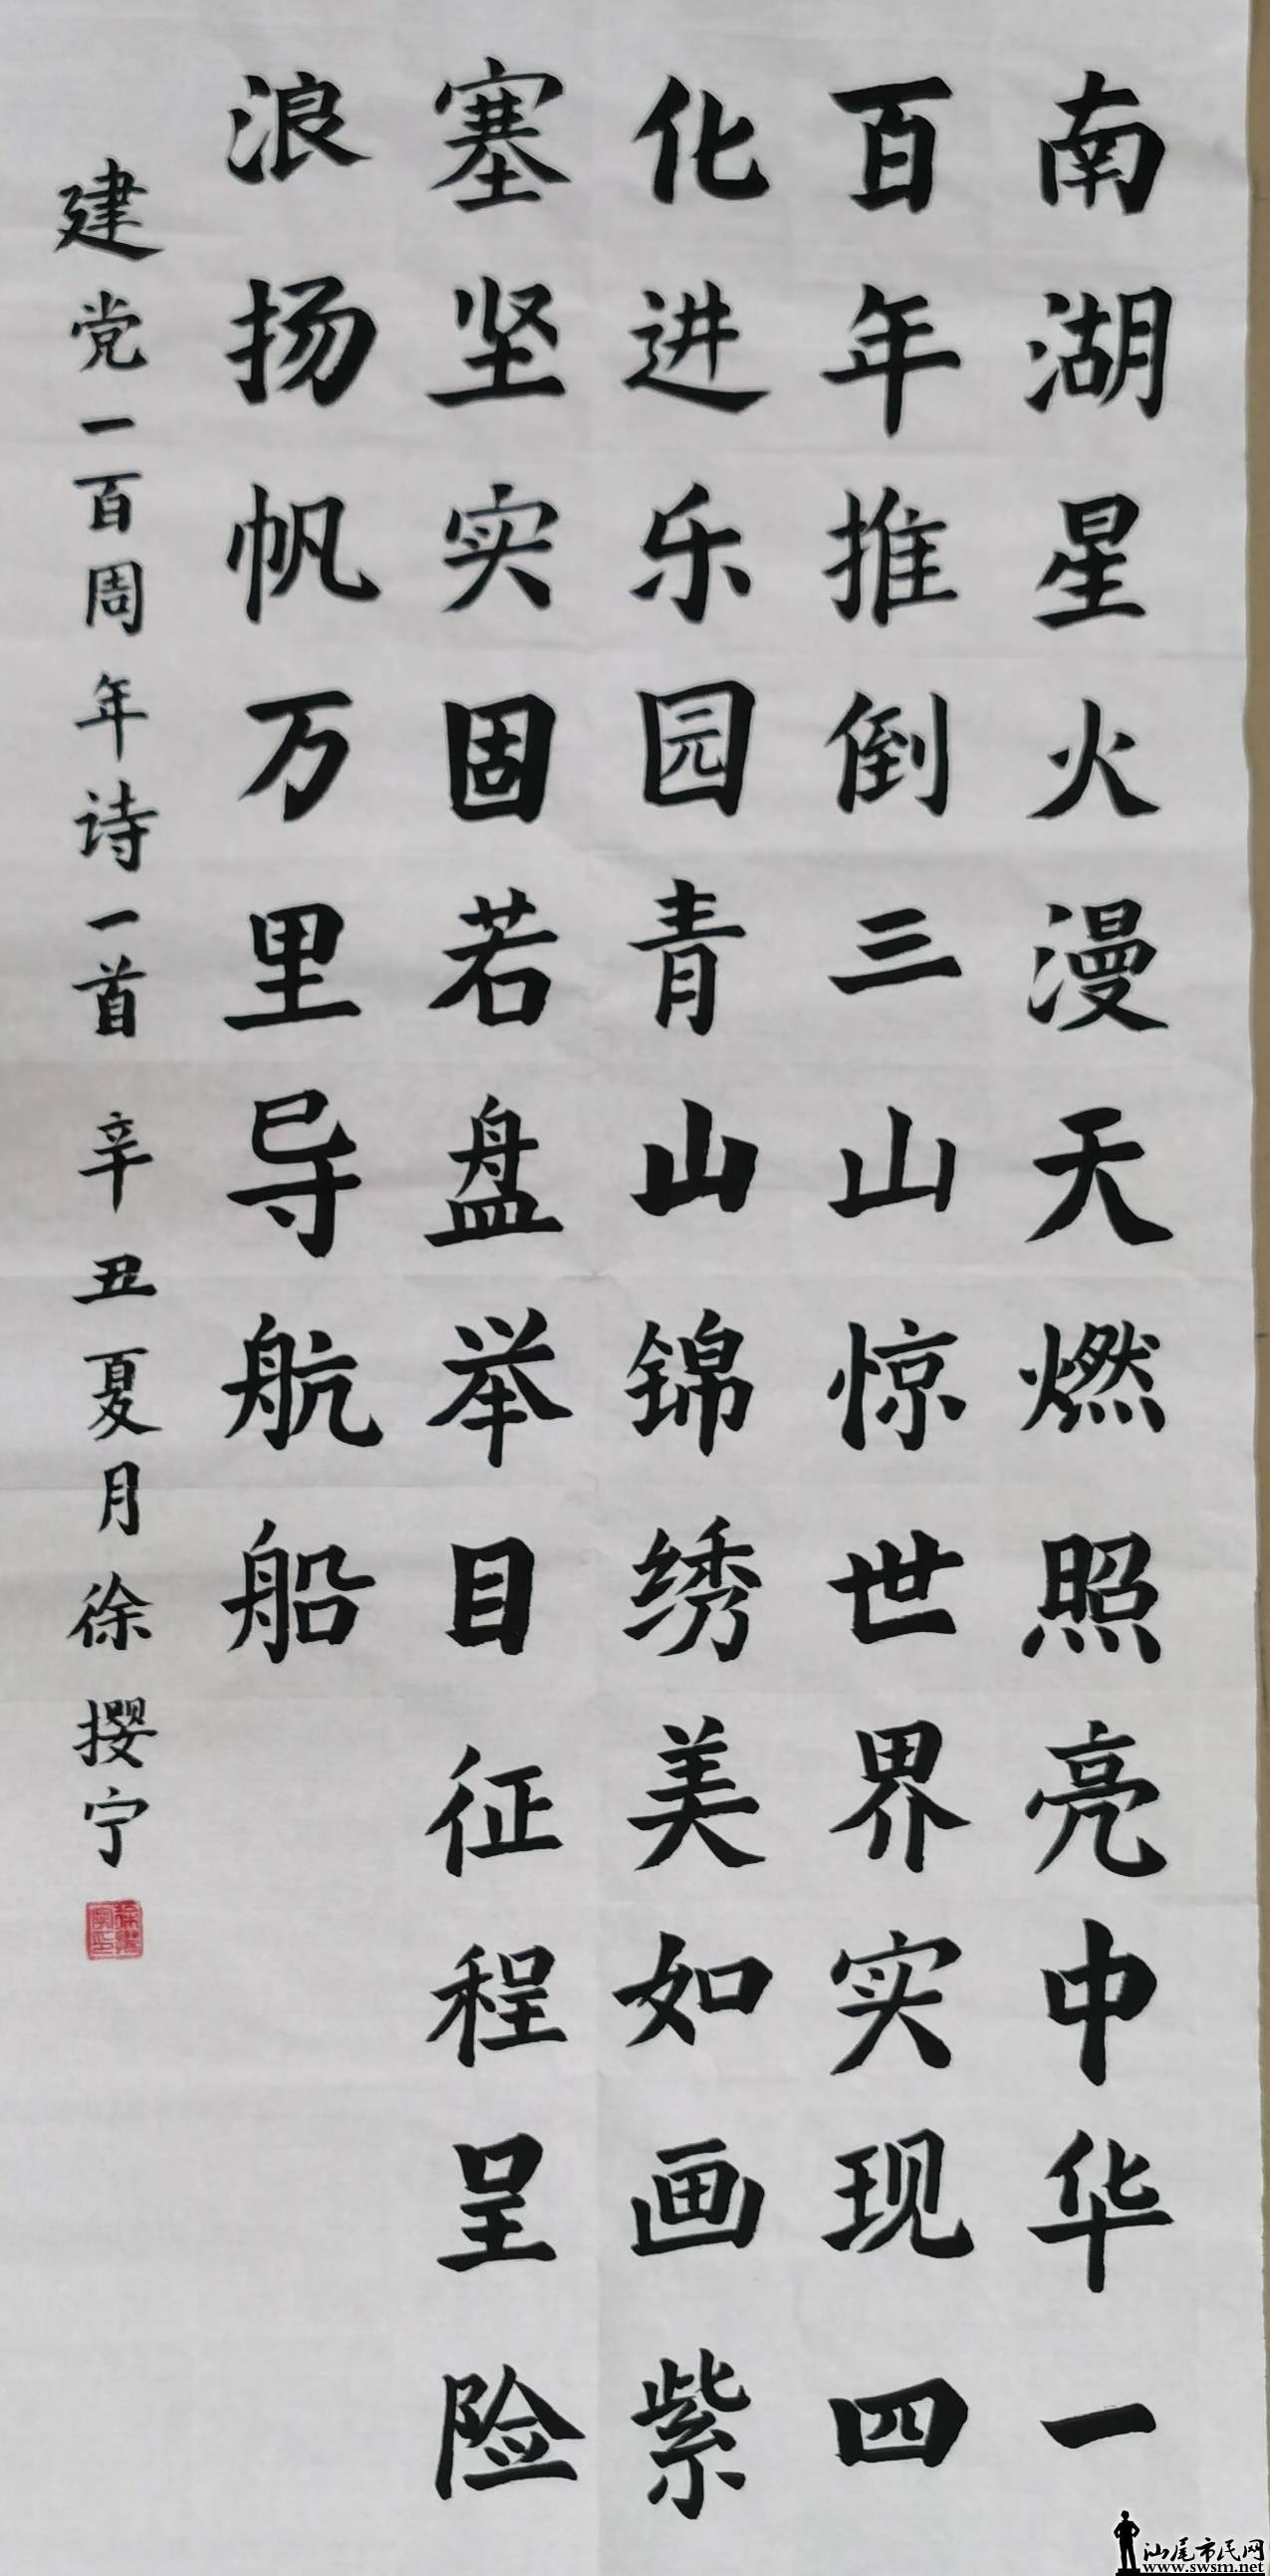 南湖星火漫天燃照亮中华一
百年推倒三山惊世界实现四
化进乐园青山锦绣美如画紫
塞坚实固若盘举目征程呈险
浪扬帆万里导航船
建党一百周年诗一首 辛丑夏月徐撄宁
汕尾市民网
www.swsm.net